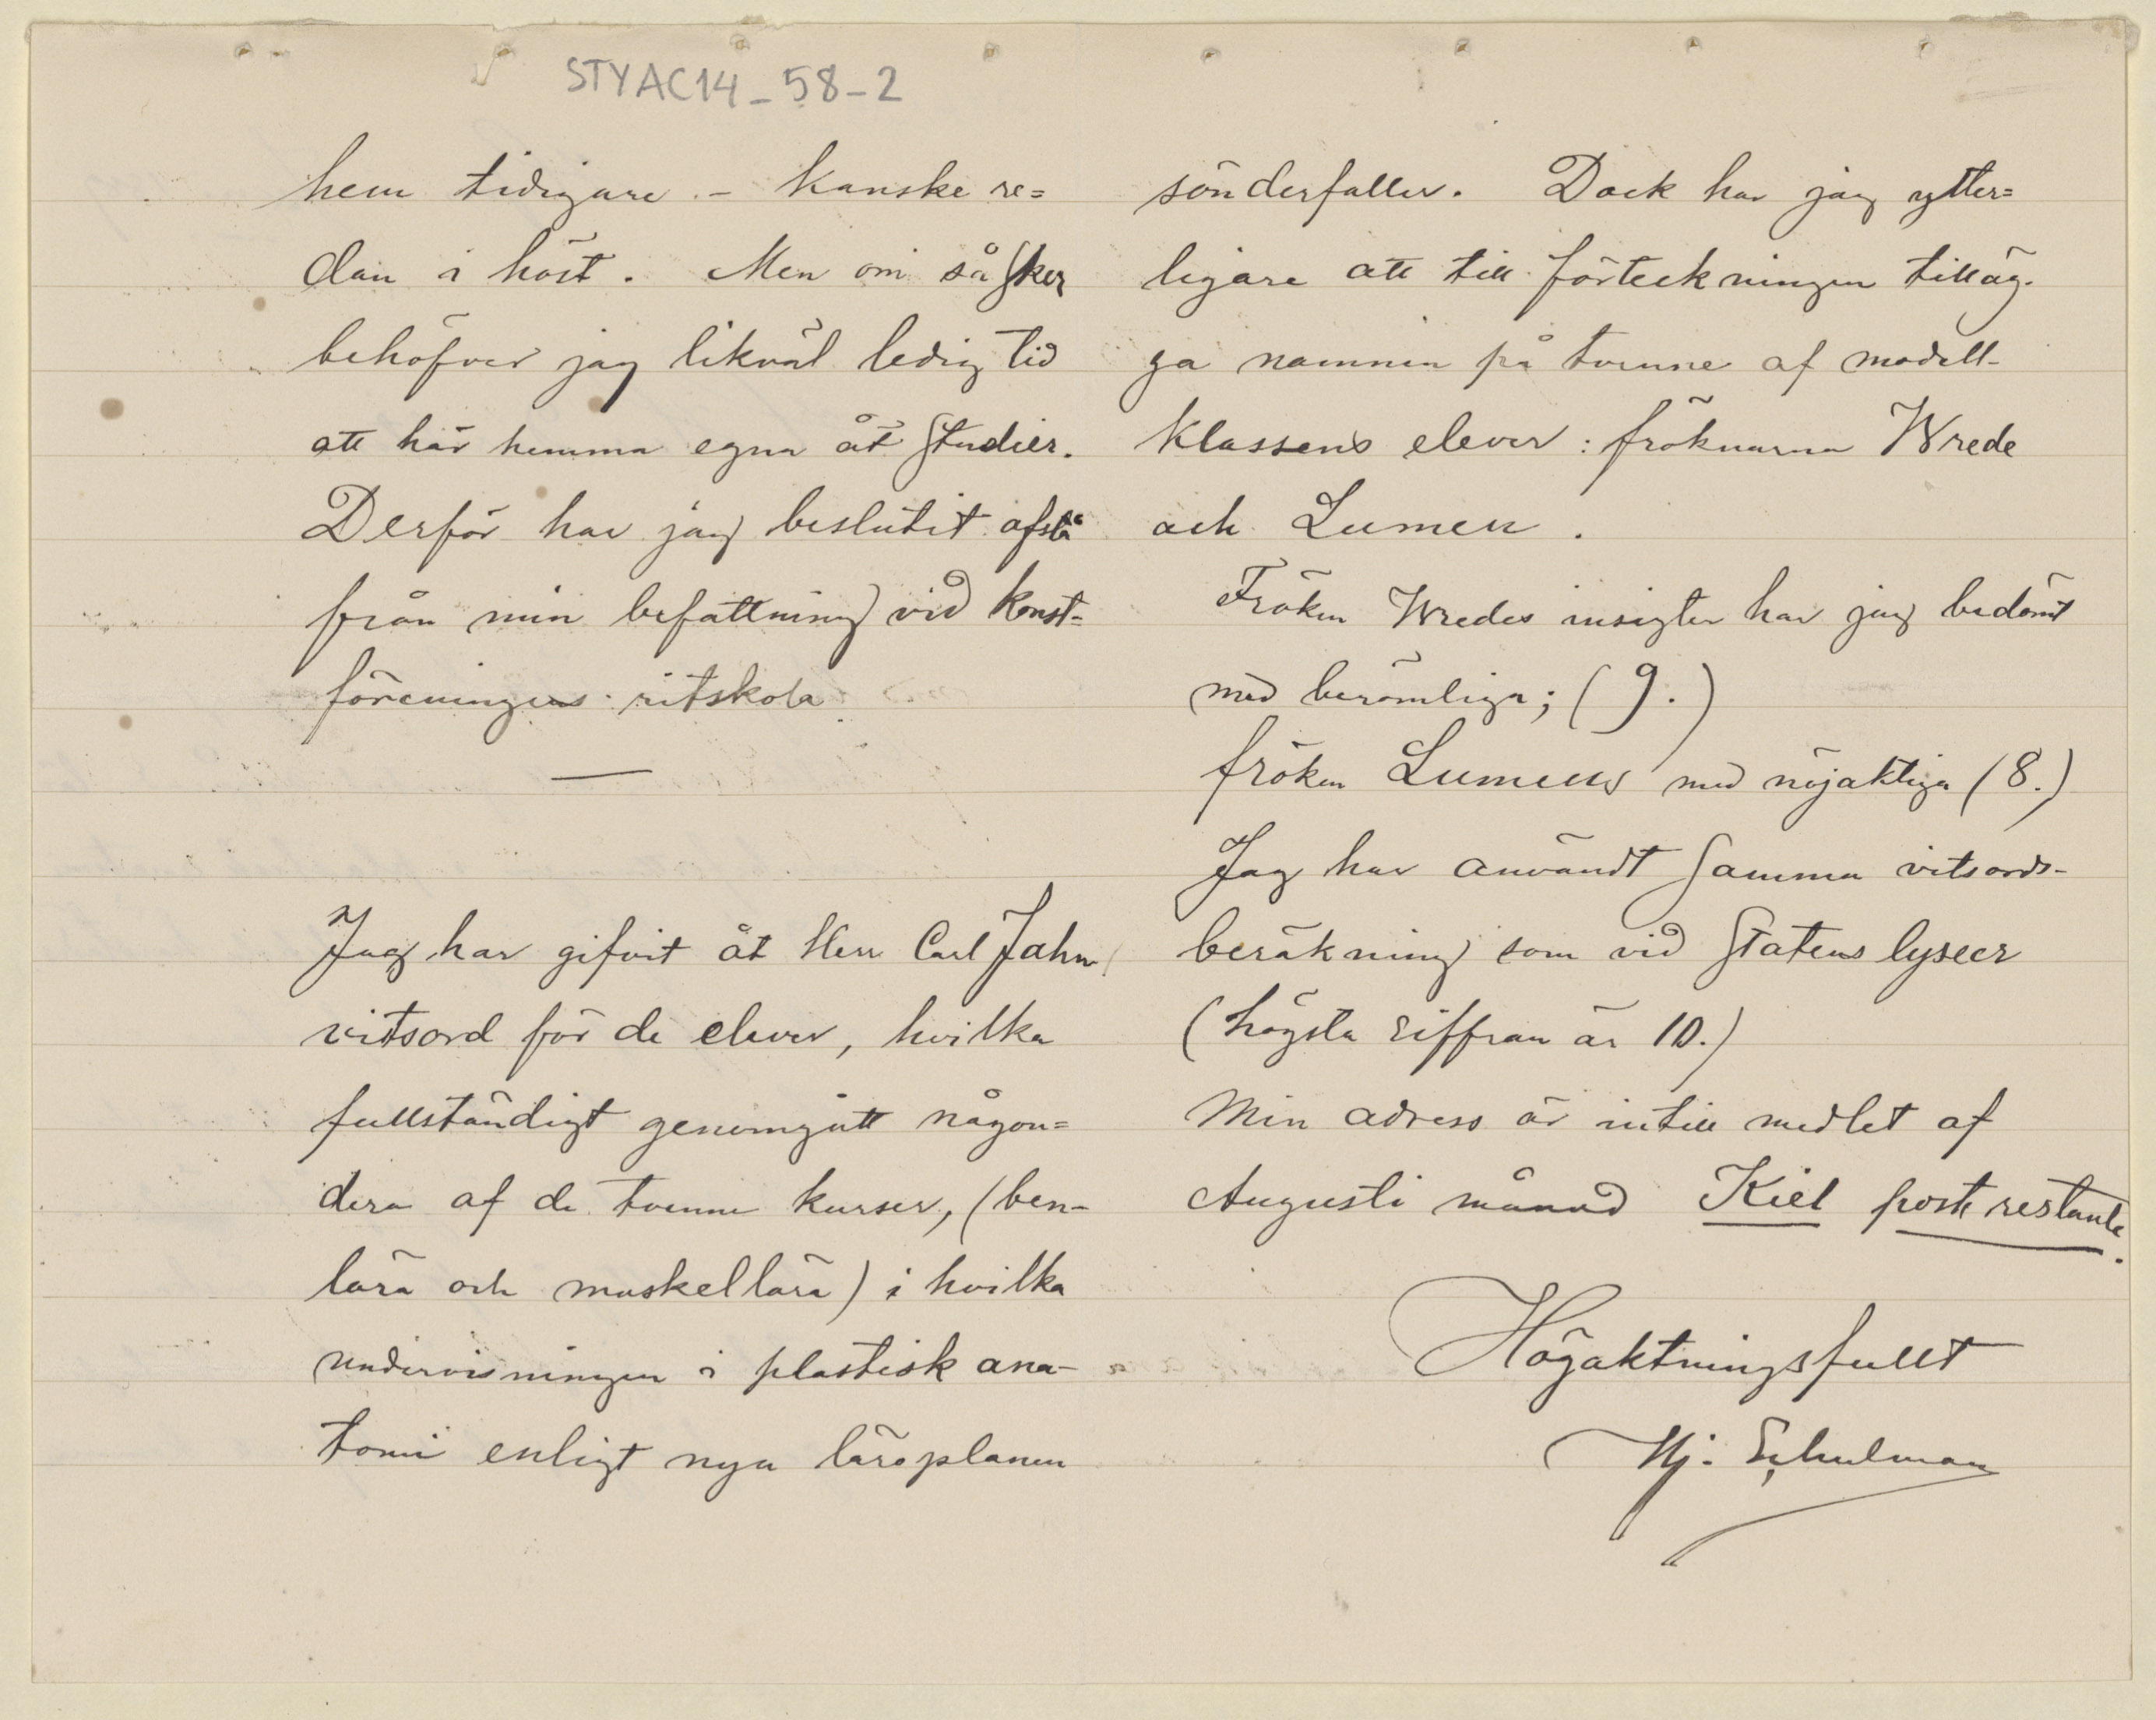 STYAC14_58_2
hem tidigare. - Kanske re=
dan i höst. Men om så sker
behöfver jag likväl ledig tid
att här hemma egna åt studier.
Derför har jag beslutit afstå
från min befattning vid konst=
föreningens ritskola.
—
Jag har gifvit åt Herr Carl Jahn
vitsord för de elever, hvilka
fullständigt genomgått någon=
dera af de tvenne kurser, (ben-
lära och muskellära) i hvilka
undervisningen i plastisk ana-
tomi enligt nya läroplanen
sönderfaller. Dock har jag ytter=
ligare att till förteckningen tilläg-
ga namnen på tvenne af modell-
klassens elever: fröknarna Wrede
och Lumen.
Fröken Wredes insigter har jag bedömt
med berömliga; (9.)
fröken Lumens med nöjaktiga (8.)
Jag har användt samma vitsords-
beräkning som vid Statens lyseer
(högsta siffran är 10.)
Min adress är intill medlet af
Augusti månad Kiel poste restante.
Högaktningsfullt
Hj. Schulman